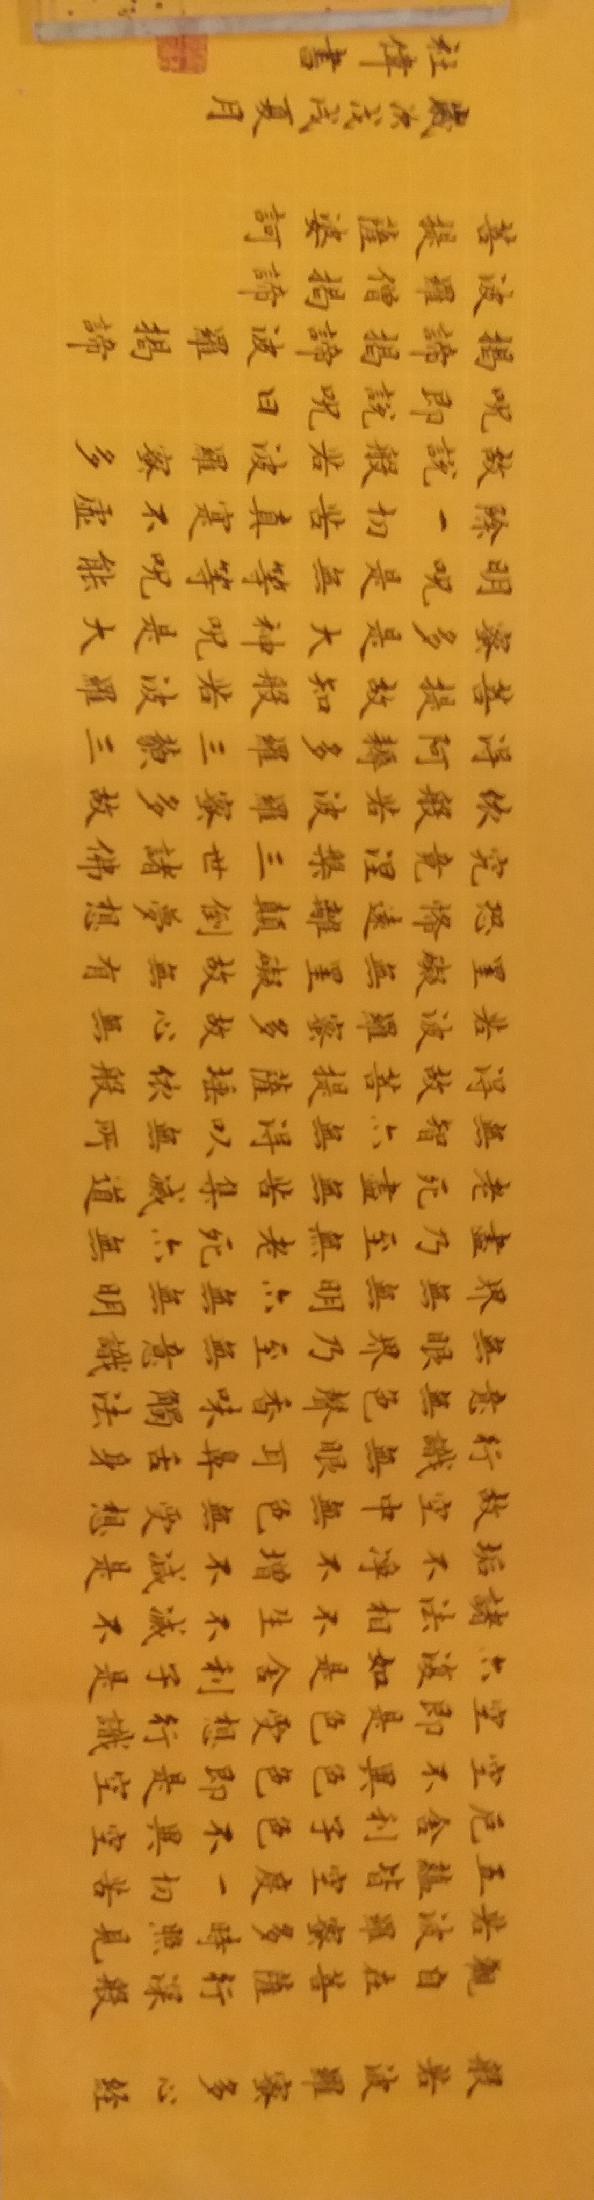 般若波羅蜜多心経
觀自在菩薩行深般
若波羅蜜多時照見
五蘊皆空度一切苦
厄舍利子色不異空
空不異色色即是空
空即是色受想行識
亦復如是舍利子是
諸法相不生不滅不
垢不淨不增不減是
故空中無色無受想
行識無眼耳鼻舌身
意無色聲香味觸法
無眼界乃至無意識
界無無明亦無無明
盡乃至無老死亦無
老死盡無苦集滅道
無智亦無得以無所
得故菩提薩埵依般
若波羅蜜多故心無
罣礙無罣礙故無有
恐怖遠離顛倒夢想
究竟涅槃三世諸佛
依般若波羅蜜多故
得阿耨多羅三藐三
菩提故知般若波羅
蜜多是大神呪是大
明呪是無等等呪能
除一切苦真寔不虛
故說般若波羅蜜多
呪即說呪曰
揭諦揭諦波羅揭諦
波羅僧揭諦
菩提薩婆訶
歲次戊戌夏月
杜偉書